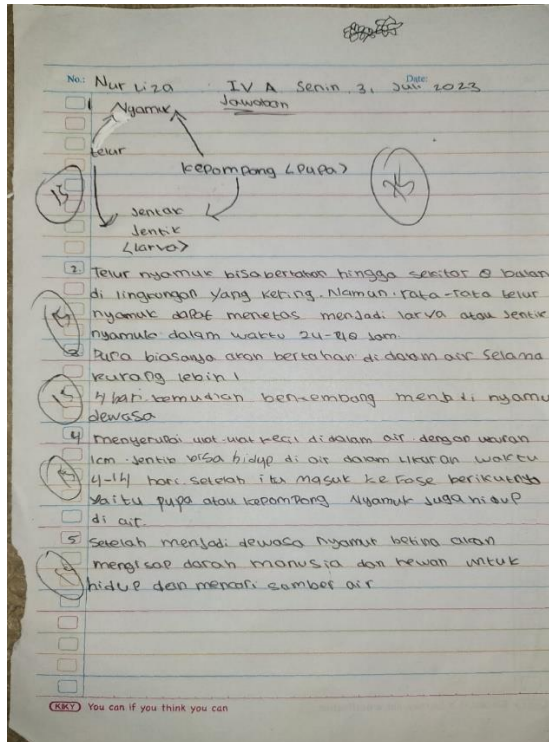 No.: Nur Liza IV A Senin, 3, Juli 2023
Date:
Jawaban
1 Nyamuk
telur
kepompong <Pupa>
15
Jentak
Jentik
<Larva>
2 Telur nyamuk bisa bertahan hingga sekitar 8 bulan
di lingkungan yang kering. Namun rata-rata telur
nyamuk dapat menetas menjadi larva atau jentik
nyamuk dalam waktu 24- jam.
3 Pupa biasanya akan bertahan di dalam air selama
kurang lebih 1
15
4 hari. kemudian berkembang menjadi nyamu
dewasa
4 menyerupai ulat-ulat kecil di dalam air dengan ukuran
1cm. Jentik bisa hidup di air dalam ukuran waktu
4-14 hari. setelah itu masuk ke Fase berikutnya
yaitu pupa atau kepompong Nyamuk juga hidup
di air.
5 setelah menjadi dewasa nyamuk betina akan
mengisap darah manusia dan hewan untuk
hidup dan mencari sumber air
KIKY You can if you think you can